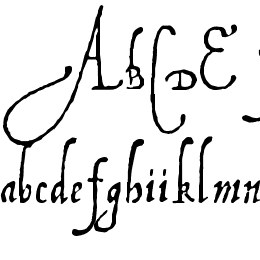 ABCDE
abcdefghiiklmn